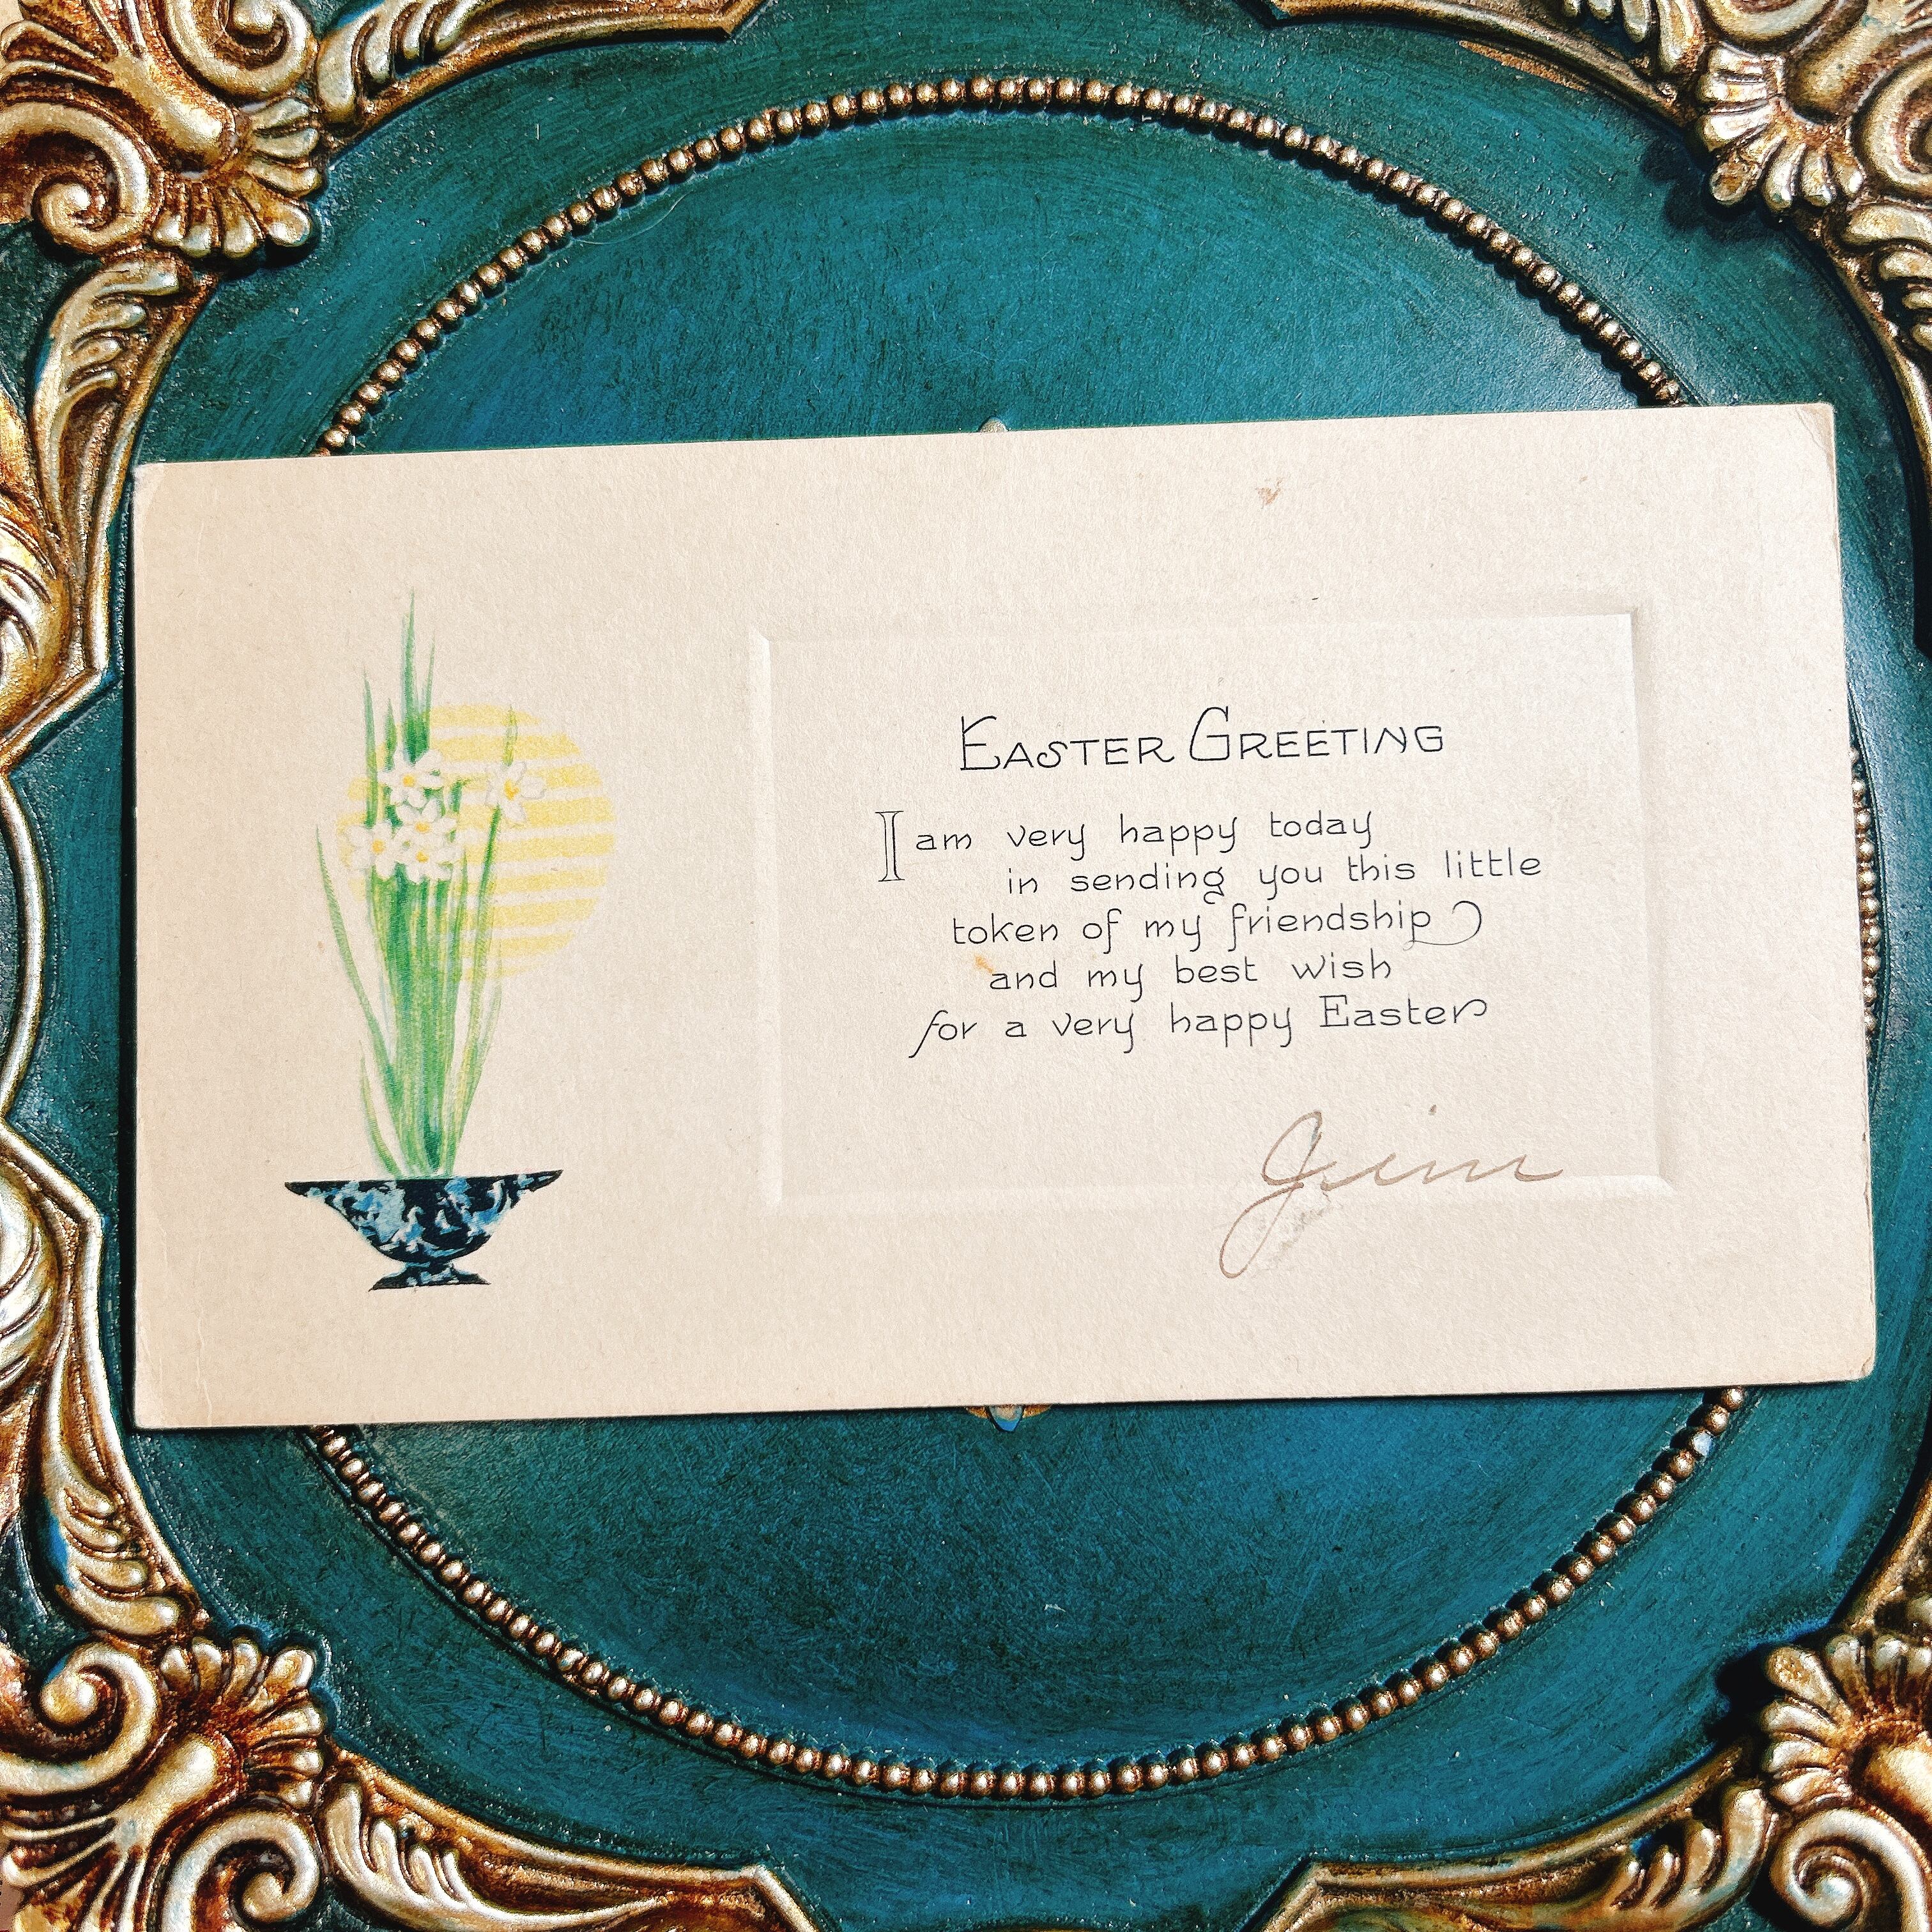 EASTER GREETING
I am very happy today
in sending you this little
token of my friendship
and my best wish
for a very happy Easter
Jim